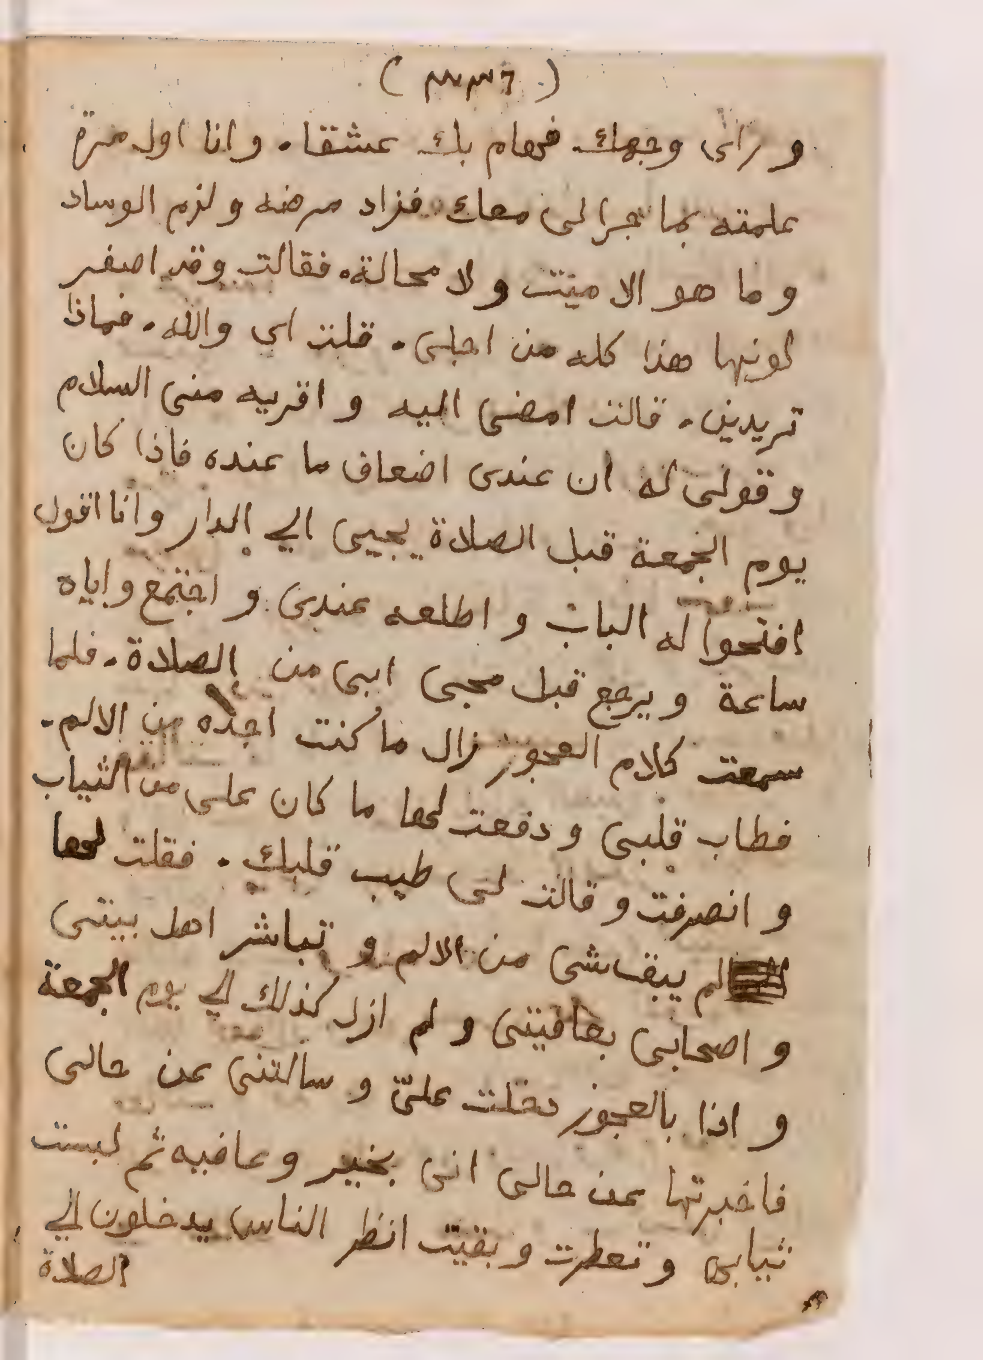 ( ٣٣٦ )
و رائ وجهك فهام بك عشقا. وانا اول مرة
علمته بما جرا لى معك فزاد مرضه و لزم الوساد
و ما هو الا ميت و لا محالة. فقالت وقد اصفر
لونها هذا كله من اجلى. قلت اى والله. فماذا
تريدين. قالت امضى اليه و اقريه منى السلام
و قولى له ان عندى اضعاف ما عنده فاذا كان
يوم الجمعة قبل الصلاة يجيى الي الدار وانا اقول
افتحوا له الباب و اطلعه عندى و اجتمع واياه
ساعة و يرجع قبل مجى ابى من الصلاة. فلما
سمعت كلام العجوز زال ما كنت اجده من الالم.
فطاب قلبى و دفعت لها ما كان على من الثياب
و انصرفت و قالت لى طيب قلبك. فقلت لها
لم يبقاشى من الالم و تباشر اهل بيتى
و اصحابى بعافيتى و لم ازل كذلك الي يوم الجمعة
و اذا بالعجوز دخلت علىّ و سالتنى عن حالى
فاخبرتها عن حالى انى بخير وعافيه ثم لبست
ثيابى و تعطرت و بقيت انظر الناس يدخلون الي
الصلاة